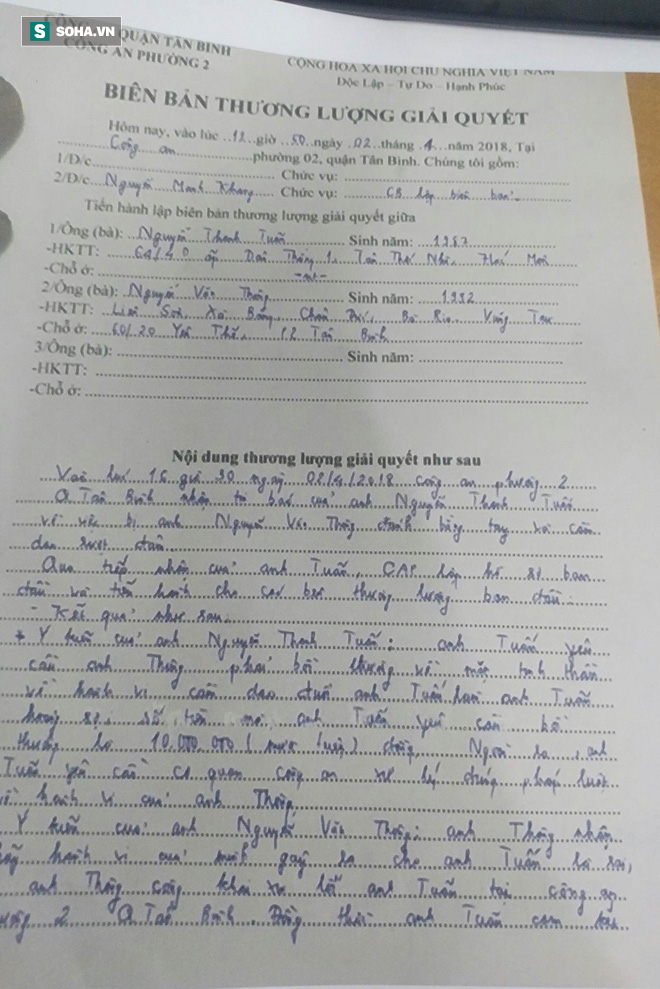 S SOHA.VN
CÔNG QUẬN TÂN BÌNH
CÔNG AN PHƯỜNG 2
CỘNG HÒA XÃ HỘI CHỦ NGHĨA VIỆT NAM
Độc Lập – Tự Do – Hạnh Phúc
BIÊN BẢN THƯƠNG LƯỢNG GIẢI QUYẾT
Hôm nay, vào lúc 12 giờ 50 ngày 02 tháng 4 năm 2018, Tại
Công an phường 02, quận Tân Bình. Chúng tôi gồm:
1/Đ/c Chức vụ:
2/Đ/c Nguyễn Mạnh Khang Chức vụ: CB lập biên bản
Tiến hành lập biên bản thương lượng giải quyết giữa
1/Ông (bà): Nguyễn Thanh Tuấn Sinh năm: 1987
-HKTT: 64/4D ấp
-Chỗ ở:
2/Ông (bà): Nguyễn Văn Thông Sinh năm: 1982
-HKTT: Xà Bang Châu Đức, Bà Rịa Vũng Tàu
-Chỗ ở: 60/20 Yên Thế, P2 Tân Bình
3/Ông (bà): Sinh năm:
-HKTT:
-Chỗ ở:
Nội dung thương lượng giải quyết như sau
Vào lúc 16 giờ 30 ngày 02/4/2018 công an phường 2
Q Tân Bình nhận tin báo của anh Nguyễn Thanh Tuấn
về việc bị anh Nguyễn Văn Thông đánh bằng tay và cầm
dao rượt đuổi
Qua tiếp nhận của anh Tuấn, CAP lập hồ sơ ban
đầu và tiến hành cho các bên thương lượng ban đầu.
- Kết quả như sau.
* Ý kiến của anh Nguyễn Thanh Tuấn: anh Tuấn yêu
cầu anh Thông phải bồi thường về mặt tinh thần
về hành vi cầm dao đuổi anh Tuấn làm anh Tuấn
hoảng sợ, số tiền mà anh Tuấn yêu cầu bồi
thường là 10.000.000 (mười triệu) đồng, Ngoài ra anh
Tuấn yêu cầu cơ quan công an xử lý đúng pháp luật
về hành vi của anh Thông
Ý kiến của anh Nguyễn Văn Thông: anh Thông nhận
thấy hành vi của mình gây ra cho anh Tuấn là sai,
anh Thông công khai xin lỗi anh Tuấn tại công an
phường 2 Q Tân Bình. Đồng thời anh Tuấn cam kết